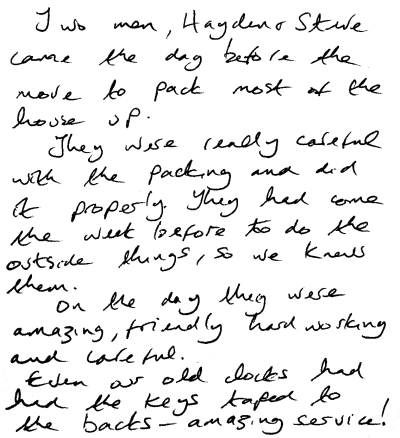 Two men, Hayden & Steve
came the day before the
move to pack most of the
house up.
They were really careful
with the packing and did
it properly. They had come
the week before to do the
outside things, so we knew
them.
On the day they were
amazing, friendly hard working
and careful.
Even our old clocks had
had the keys taped to
the backs – amazing service!